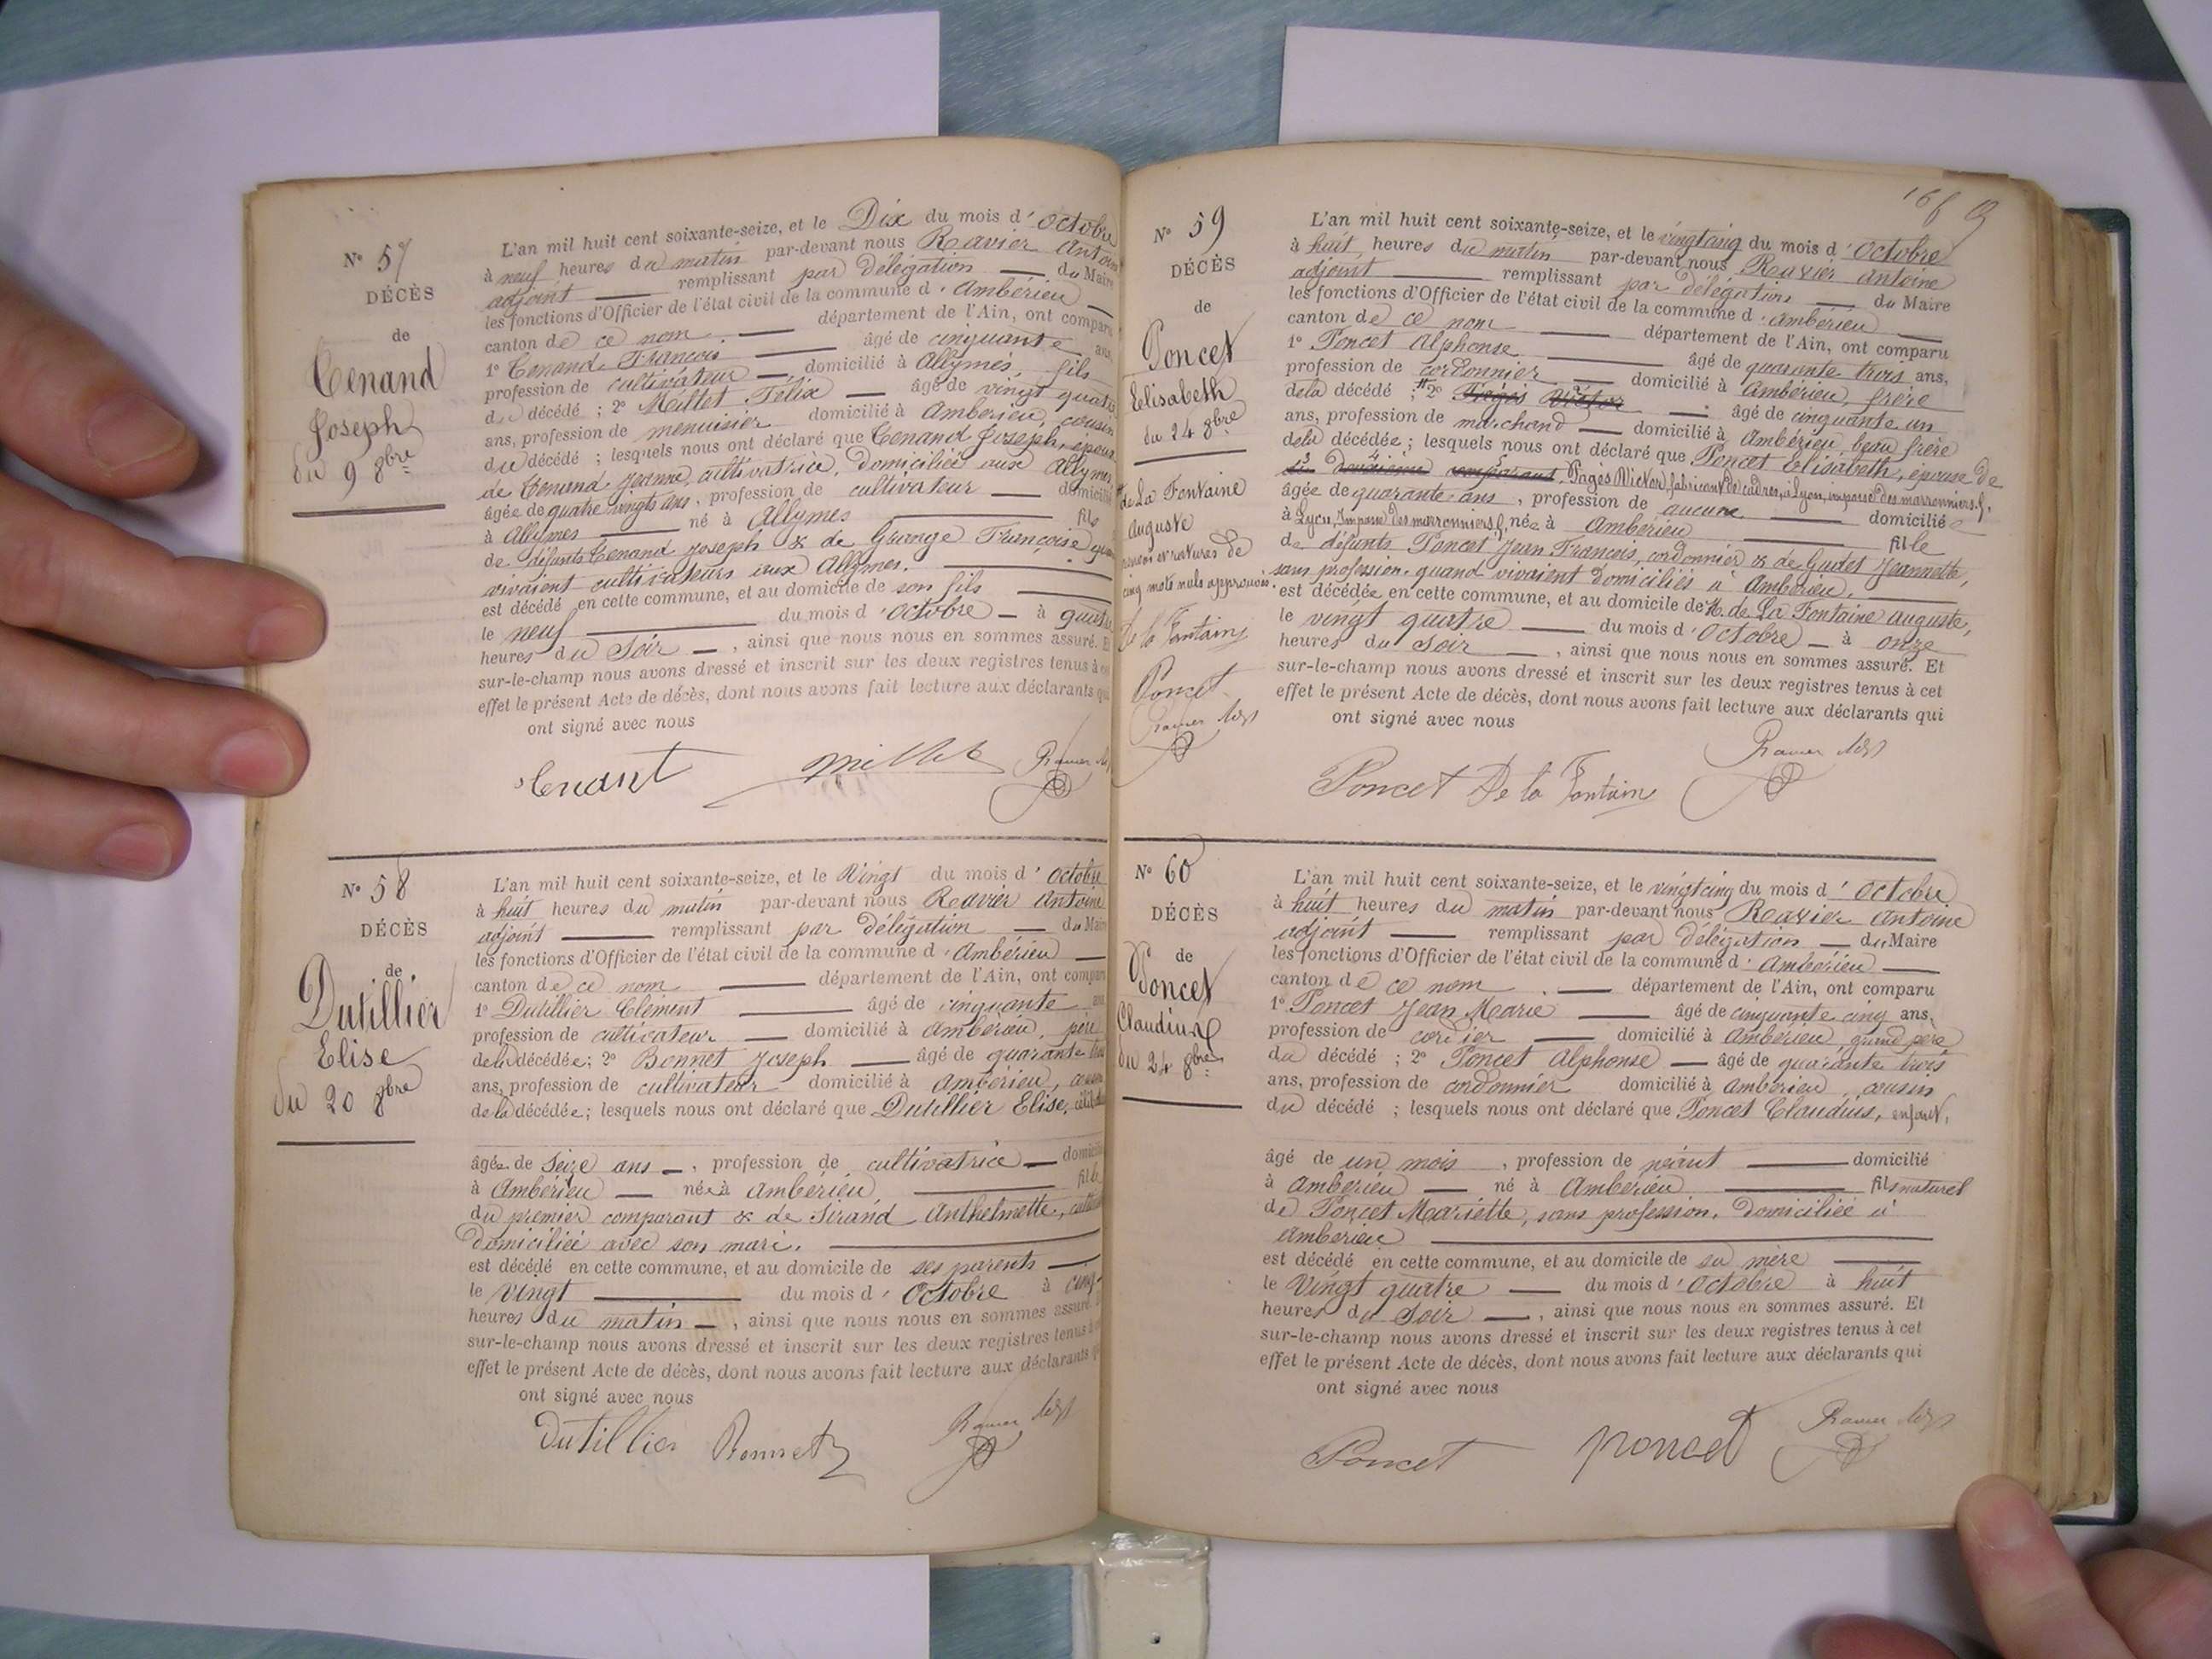 N° 57
DÉCÈS
de
Tenand
Joseph
du 9 8bre
L'an mil huit cent soixante-seize, et le Dix du mois d'octobre
à neuf heures du matin par-devant nous Ravier Antoin
adjoint remplissant par délégation du Maire
les fonctions d'Officier de l'état civil de la commune d'Ambérieu
canton de ce nom département de l'Ain, ont comparu
1° Tenand François âgé de cinquante ans,
profession de cultivateur, domicilié à Allymes, fils
du décédé ; 2° Millet Félix âgé de vingt quatre
ans, profession de menuisier domicilié à Ambérieu, cousin
du décédé ; lesquels nous ont déclaré que Tenand Joseph, époux
de Tenand Jeanne, cultivatrice, domiciliée aux Allymes,
âgé de quatre vingts ans, profession de cultivateur domicilié
à Allymes né à Allymes fils
de défunts Tenand Joseph & de Grange Françoise quand
vivaient cultivateurs aux Allymes.
est décédé en cette commune, et au domicile de son fils
le neuf du mois d'octobre à quatre
heures du soir, ainsi que nous nous en sommes assuré. Et
sur-le-champ nous avons dressé et inscrit sur les deux registres tenus à cet
effet le présent Acte de décès, dont nous avons fait lecture aux déclarants qui
ont signé avec nous
Tenant Millet Ravier adj
N° 58
DÉCÈS
de
Dutillier
Elise
du 20 8bre
L'an mil huit cent soixante-seize, et le Vingt du mois d'octobre
à huit heures du matin par-devant nous Ravier Antoine
adjoint remplissant par délégation du Maire
les fonctions d'Officier de l'état civil de la commune d'Ambérieu
canton de ce nom département de l'Ain, ont comparu
1° Dutillier Clément âgé de cinquante ans
profession de cultivateur domicilié à Ambérieu, père
de la décédée; 2° Bonnet Joseph âgé de quarante
ans, profession de cultivateur domicilié à Ambérieu, cousin
de la décédée; lesquels nous ont déclaré que Dutillier Elise,
âgée de seize ans, profession de cultivatrice domicilié
à Ambérieu née à Ambérieu fille
du premier comparant & de Sirand Anthelmette,
domiciliée avec son mari.
est décédé en cette commune, et au domicile de ses parents
le vingt du mois d'Octobre à cinq
heures du matin, ainsi que nous nous en sommes assuré. Et
sur-le-champ nous avons dressé et inscrit sur les deux registres tenus à cet
effet le présent Acte de décès, dont nous avons fait lecture aux déclarants qui
ont signé avec nous
Dutillier Bonnet Ravier adj
N° 59
DÉCÈS
de
Poncet
Elisabeth
du 24 8bre
de La Fontaine
Auguste
renvoi et ratures de
cinq mots nuls approuvés.
De la Fontaine
Poncet
Ravier adj
L'an mil huit cent soixante-seize, et le vingt cinq du mois d'Octobre
à huit heures du matin par-devant nous Ravier Antoine
adjoint remplissant par délégation du Maire
les fonctions d'Officier de l'état civil de la commune d'Ambérieu
canton de ce nom département de l'Ain, ont comparu
1° Poncet Alphonse âgé de quarante trois ans,
profession de cordonnier domicilié à Ambérieu, frère
de la décédé ; 2° Pagès Victor âgé de cinquante un
ans, profession de marchand domicilié à Ambérieu, beau frère
de la décédée ; lesquels nous ont déclaré que Poncet Elisabeth, épouse de
du deuxième comparant, Pagès Victor, fabricant de cadres, à Lyon, impasse des marronniers 7,
âgée de quarante ans, profession de aucune domiciliée
à Lyon, Impasse des marronniers 7, née à Ambérieu fille
de défunts Poncet Jean François, cordonnier & de Gudet Jeannette,
sans profession, quand vivaient domiciliés à Ambérieu.
est décédée en cette commune, et au domicile de M. de La Fontaine Auguste,
le vingt quatre du mois d'Octobre à onze
heures du soir, ainsi que nous nous en sommes assuré. Et
sur-le-champ nous avons dressé et inscrit sur les deux registres tenus à cet
effet le présent Acte de décès, dont nous avons fait lecture aux déclarants qui
ont signé avec nous
Poncet De la Fontaine Ravier adj
N° 60
DÉCÈS
de
Poncet
Claudius
du 24 8bre
L'an mil huit cent soixante-seize, et le vingt cinq du mois d'Octobre
à huit heures du matin par-devant nous Ravier Antoine
adjoint remplissant par délégation du Maire
les fonctions d'Officier de l'état civil de la commune d'Ambérieu
canton de ce nom département de l'Ain, ont comparu
1° Poncet Jean Marie âgé de cinquante cinq ans,
profession de cordier domicilié à Ambérieu, grand père
du décédé ; 2° Poncet Alphonse âgé de quarante trois
ans, profession de cordonnier domicilié à Ambérieu, cousin
du décédé ; lesquels nous ont déclaré que Poncet Claudius, enfant,
âgé de un mois, profession de néant domicilié
à Ambérieu né à Ambérieu fils naturel
de Poncet Mariette, sans profession, domiciliée à
Ambérieu
est décédé en cette commune, et au domicile de sa mère
le Vingt quatre du mois d'Octobre à huit
heures du soir, ainsi que nous nous en sommes assuré. Et
sur-le-champ nous avons dressé et inscrit sur les deux registres tenus à cet
effet le présent Acte de décès, dont nous avons fait lecture aux déclarants qui
ont signé avec nous
Poncet poncet Ravier adj